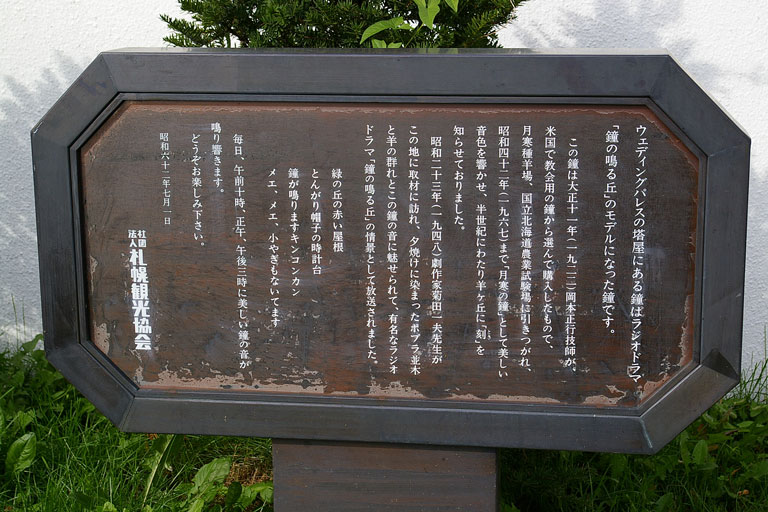 ウェディングパレスの塔屋にある鐘はラジオドラマ
「鐘の鳴る丘」のモデルになった鐘です。
この鐘は大正十一年(一九二二)岡本正行技師が、
米国で教会用の鐘から選んで購入したもので、
月寒種羊場、国立北海道農業試験場に引きつがれ、
昭和四十二年(一九六七)まで「月寒の鐘」として美しい
音色を響かせ、半世紀にわたり羊ヶ丘に「刻」を
知らせておりました。
昭和二十三年(一九四八)劇作家菊田一夫先生が
この地に取材に訪れ、夕焼けに染まったポプラ並木
と羊の群れとこの鐘の音に魅せられて、有名なラジオ
ドラマ「鐘の鳴る丘」の情景として放送されました。
緑の丘の赤い屋根
とんがり帽子の時計台
鐘が鳴りますキンコンカン
メエ、メエ、小やぎもないてます
毎日、午前十時、正午、午後三時に美しい鐘の音が
鳴り響きます。
どうぞお楽しみ下さい。
昭和六十三年七月一日
社団法人 札幌観光協会